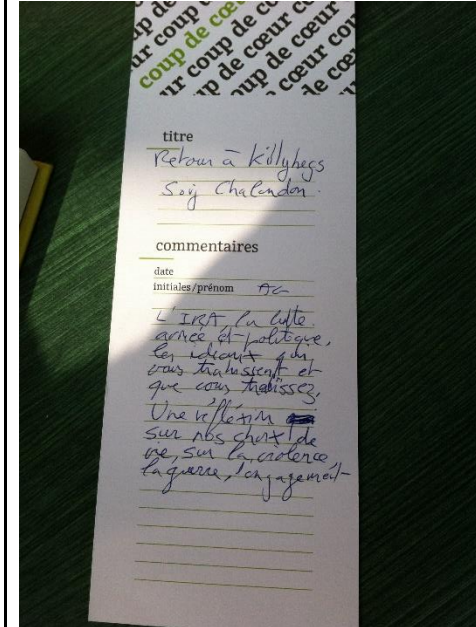 up de cœu
ur coup de cœur c
coup de cœur cou
ur coup de cœur co
up de cœur cou
coup de cœu
titre
Retour à Killybegs
Sorj Chalendon.
commentaires
date
initiales/prénom AG
L'IRA, la lutte
armée et politique,
les idéaux qui
vous trahissent et
que vous trahissez.
Une réflexion
sur nos choix de
vie, sur la violence,
la guerre, l'engagement